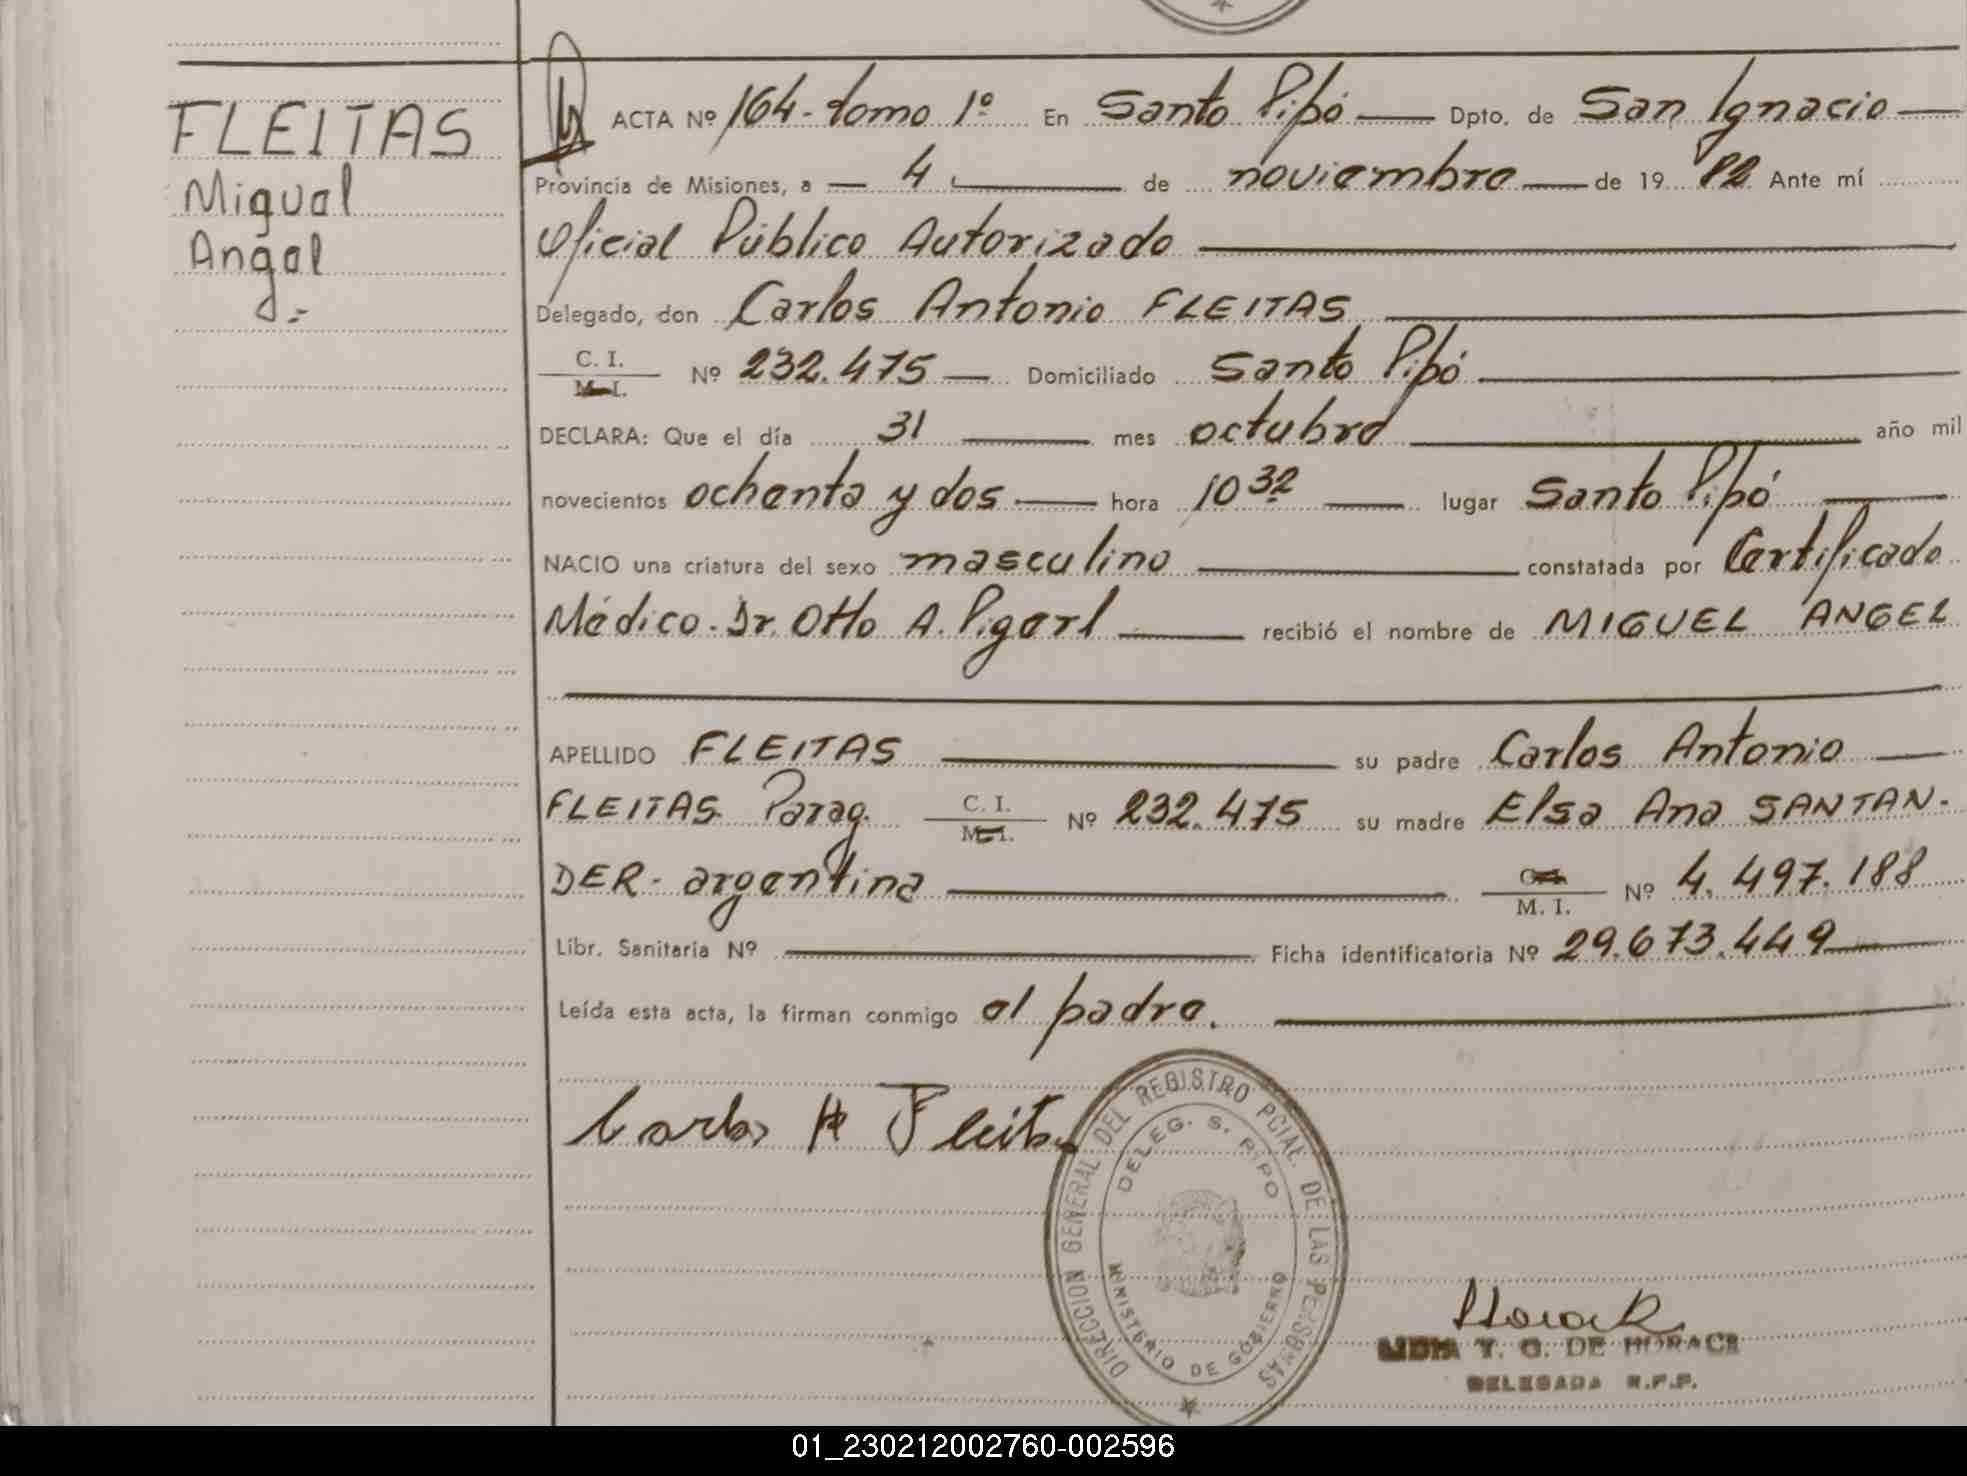 FLEITAS
Miguel
Angel
.=
ACTA Nº 164- tomo 1º En Santo Pipó Dpto. de San Ignacio
Provincia de Misiones, a 4 de noviembre de 19 82 Ante mí
Oficial Público Autorizado
Delegado, don Carlos Antonio FLEITAS
C. I.
M. I. Nº 232.475 Domiciliado Santo Pipó
DECLARA: Que el día 31 mes octubre año mil
novecientos ochenta y dos hora 10 32 lugar Santo Pipó
NACIO una criatura del sexo masculino constatada por Certificado
Médico. Dr. Otto A. recibió el nombre de MIGUEL ANGEL
APELLIDO FLEITAS su padre Carlos Antonio
FLEITAS. Parag. C. I.
M. I. Nº 232.475 su madre Elsa Ana SANTAN-
DER- argentina M. I. Nº 4.497.188
Libr. Sanitaria Nº Ficha identificatoria Nº 29.673.449
Leída esta acta, la firman conmigo el padre.
Carlos A Fleitas
DIRECCION GENERAL DEL REGISTRO PCIAL. DE LAS PERSONAS
DELEG. S. PIPO
MINISTERIO DE GOBIERNO
Horack
LIDIA T. G. DE HORACK
DELEGADA R.P.P.
01_230212002760-002596